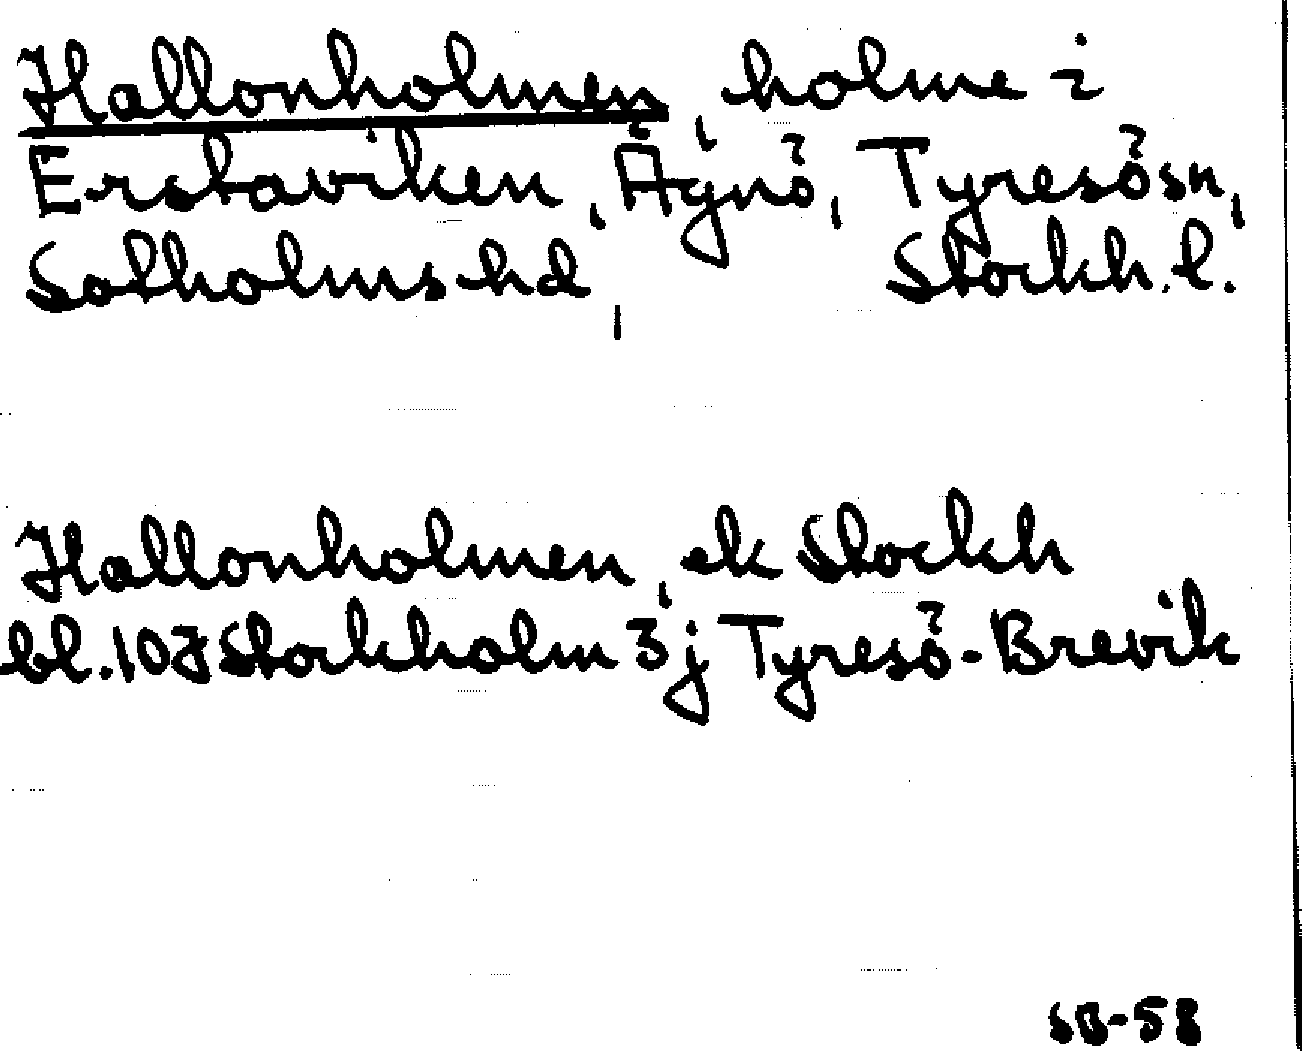 Hallonholmen, holme i
Erstaviken, Ägnö, Tyresösn,
Sotholms hd, Stockh. l.
Hallonholmen, ek Stockh
bl. 10J Stockholm 3j Tyresö-Brevik
SB-58